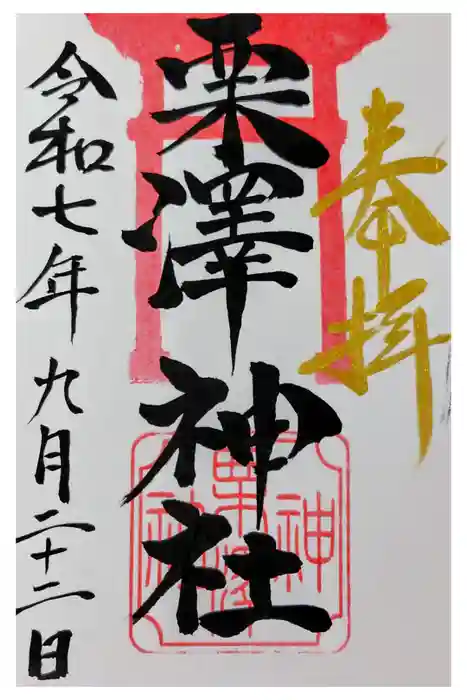 奉拝
栗澤神社
令和七年九月二十二日
栗澤
神社